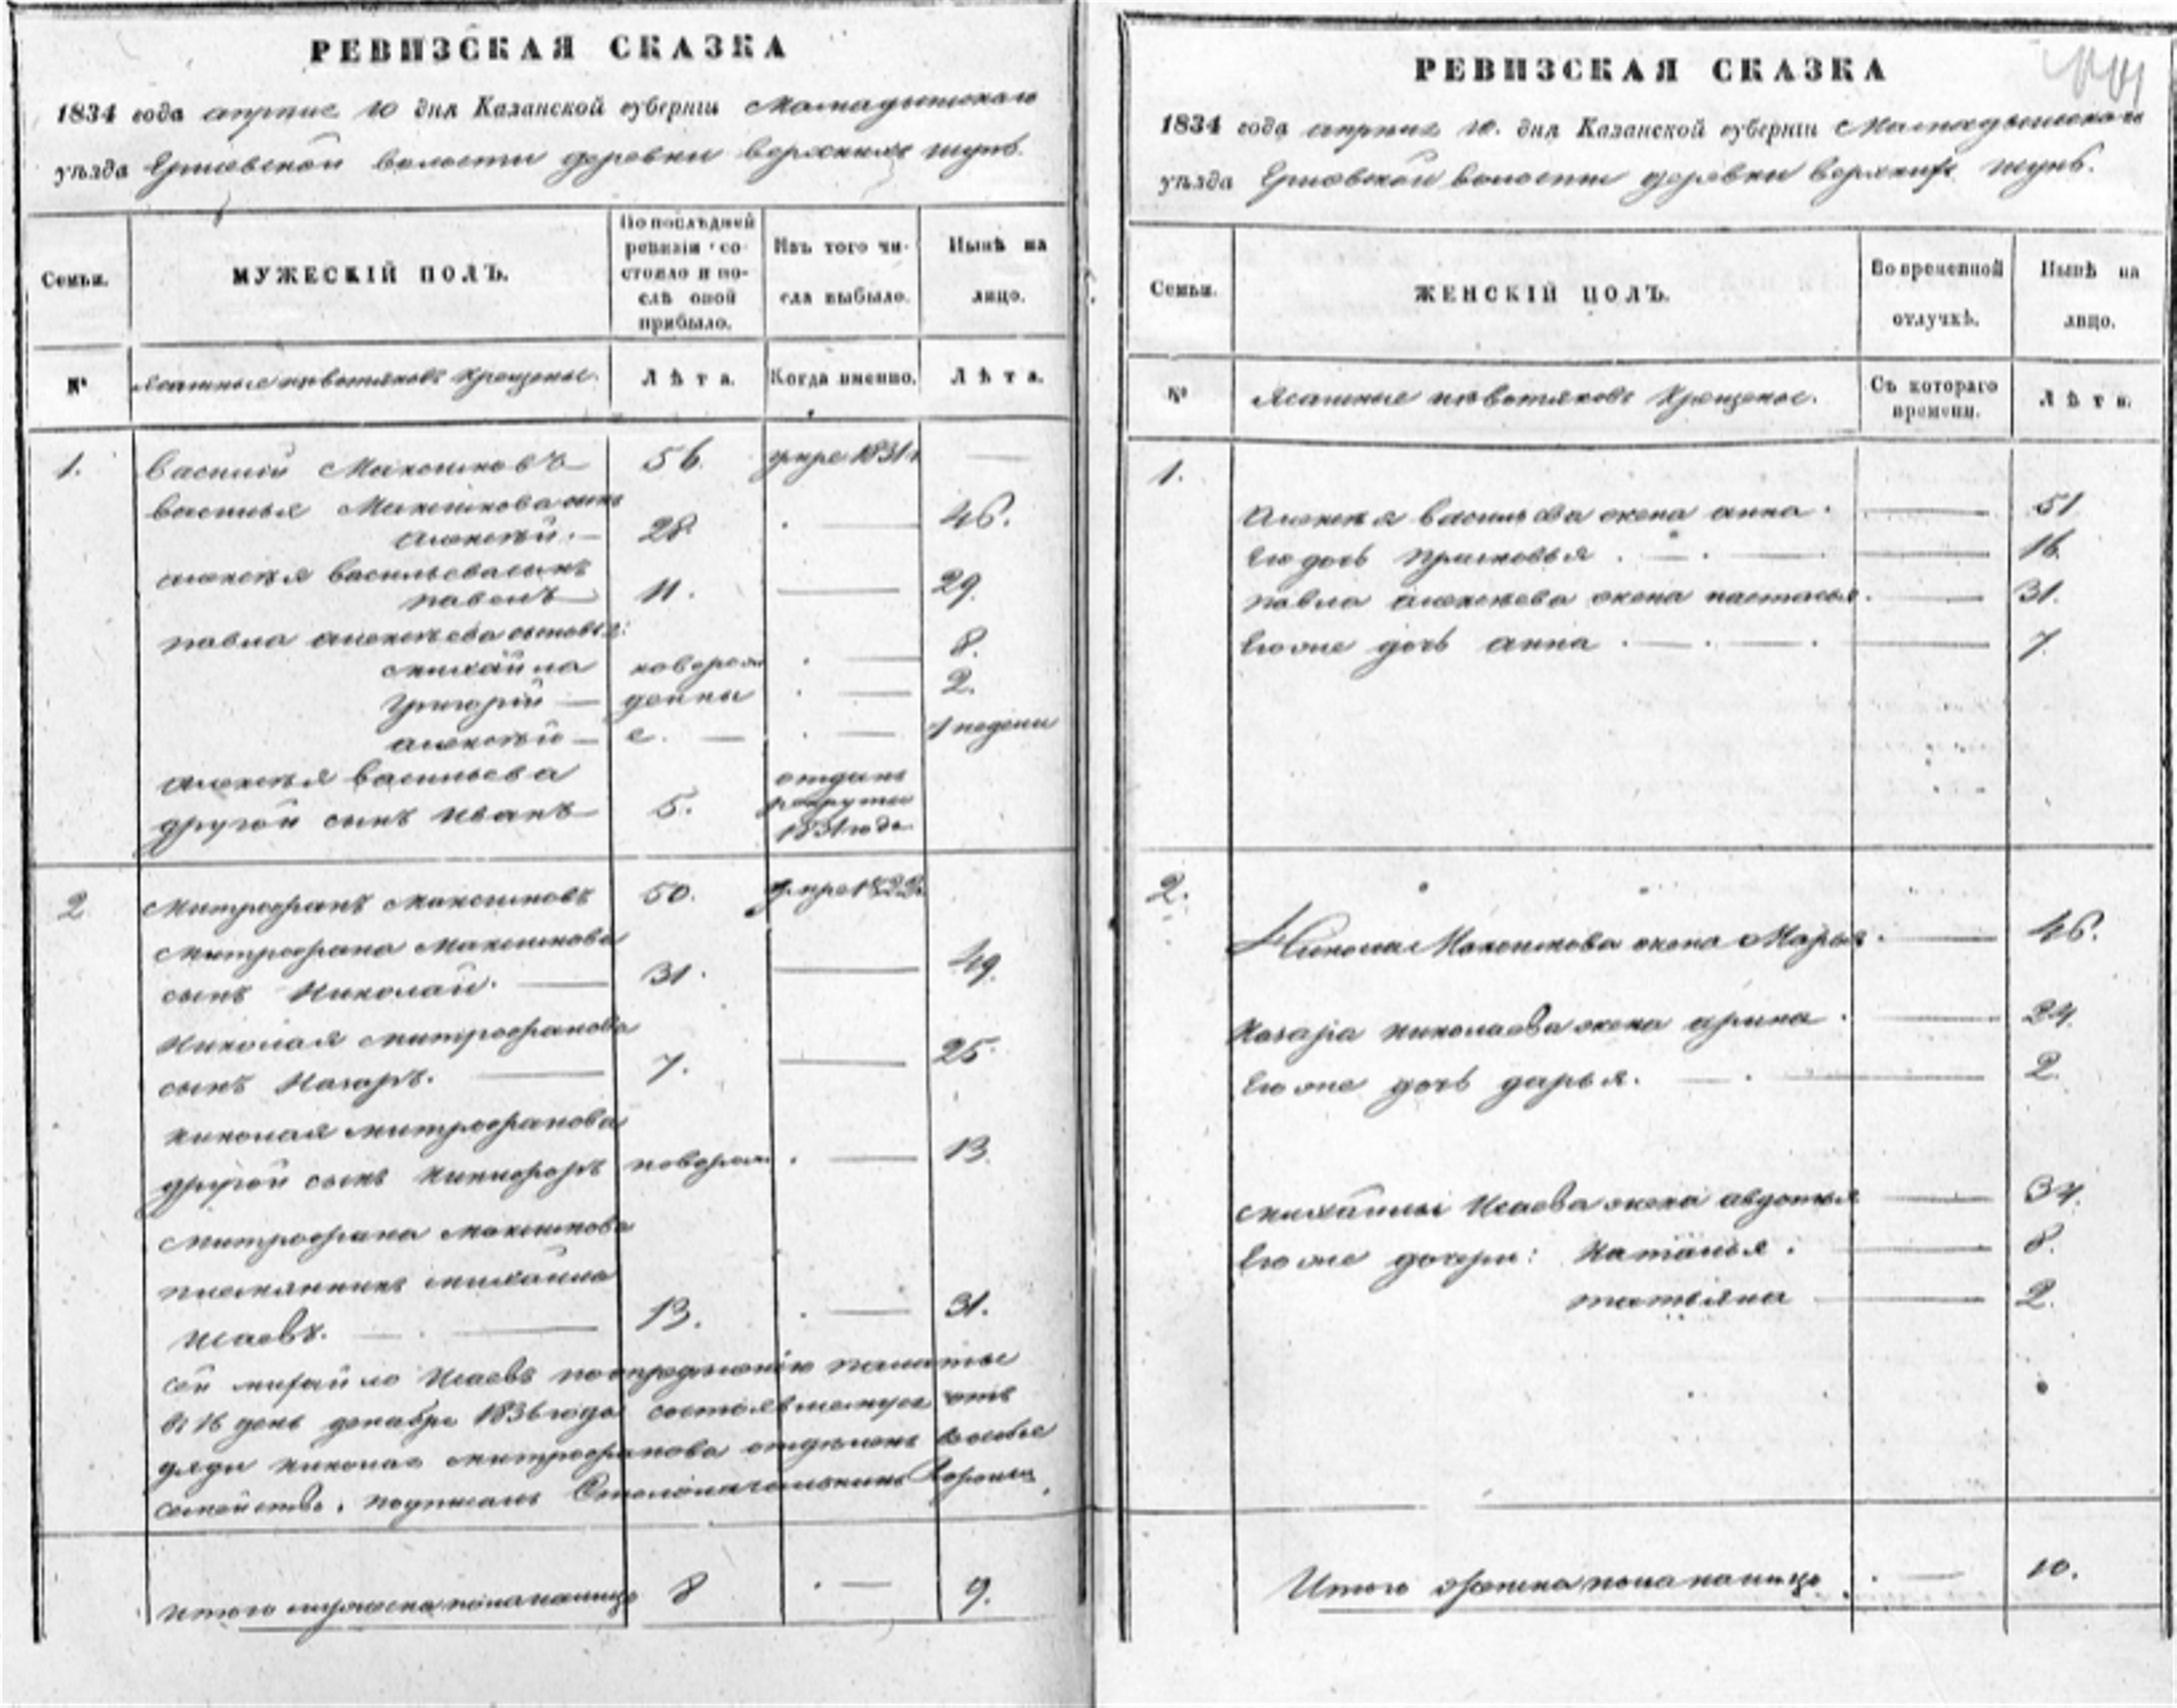 РЕВИЗСКАЯ СКАЗКА
1834 года апреля 10 дня Казанской губернiи Мамадышскаго
уѣзда Ершовской волости деревни верхнихъ шунь.
Семьи.
МУЖЕСКIЙ ПОЛЪ.
По послѣдней ревизiи состояло и послѣ оной прибыло.
Изъ того числа выбыло.
Нынѣ на лицо.
№
Ясашные изъ вотяковъ Крещеные.
Лѣта.
Когда именно.
Лѣта.
1. Василiй Максимовъ 56. умре 1831 г
василья Максимова сынъ
Алексѣй. 28. 46.
алексѣя васильева сынъ
павелъ 11. 29.
павла алексѣева сыновья:
михайла новорож 8.
Григорiй денны 2.
алексѣй е. 1 недели
алексѣя васильева отданъ
другой сынъ иванъ 5. рекруты
1831 года
2 Митрофанъ Максимовъ 50. умре 1822
Митрофана Максимова
сынъ Николай. 31. 49.
Николая митрофанова
сынъ Назаръ. 7. 25.
николая митрофанова
другой сынъ Никифоръ новорож 13.
Митрофана максимова
племянникъ михайла
Исаевъ. 13. 31.
сей михайло Исаевъ по опредѣленiю палаты
въ 16 день декабря 1836 года состоявшемуся отъ
дяди николая митрофанова отделенъ въ особое
семейство. подписалъ Столоначальникъ
итого мужеска пола на лицо 8 9.
РЕВИЗСКАЯ СКАЗКА
1834 года апреля 10. дня Казанской губернiи Мамадышскаго
уѣзда Ершовской волости деревни верхнихъ шунь.
Семьи.
ЖЕНСКIЙ ПОЛЪ.
Во временной отлучкѣ.
Нынѣ на лицо.
№
Ясашные изъ вотяковъ Крещеные.
Съ котораго времени.
Лѣта.
1.
Алексѣя васильева жена анна. 51
Его дочь прасковья. 16.
павла алексѣева жена настасья. 31.
Его же дочь анна. 7
2.
Николая Максимова жена Марья. 46.
Назара николаева жена арина. 24.
Его же дочь дарья. 2.
михайлы Исаева жена авдотья 34.
Его же дочери: Наталья. 8.
татьяна 2.
Итого женска пола на лицо. 10.